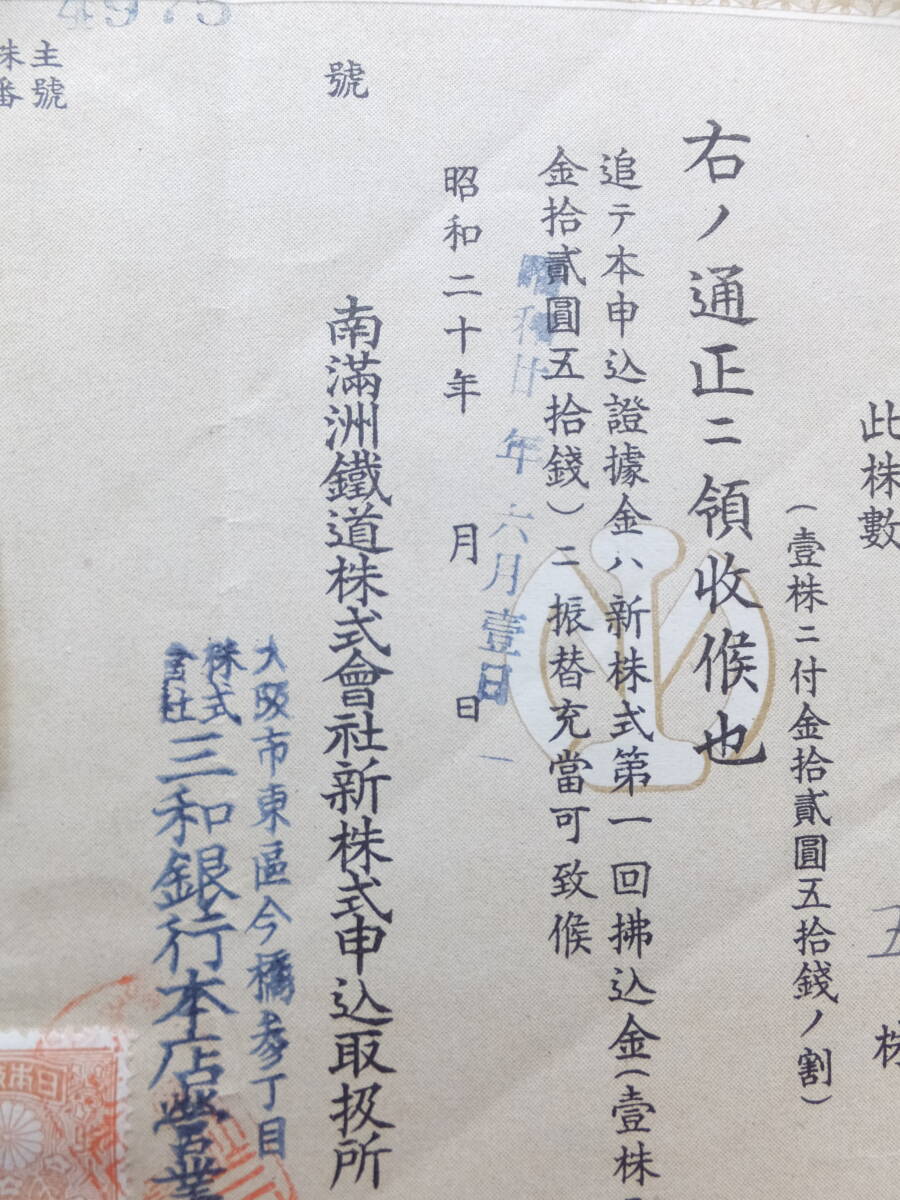 此株數
五 株
(壹株ニ付金拾貳圓五拾錢ノ割)
右ノ通正ニ領收候也
追テ本申込證據金ハ新株式第一回拂込金(壹株
金拾貳圓五拾錢)ニ振替充當可致候
昭和廿年六月壹日
昭和二十年 月 日
南滿洲鐵道株式會社新株式申込取扱所
號
大阪市東區今橋參丁目
株式會社三和銀行本店營業
株主
番號
4975
日本